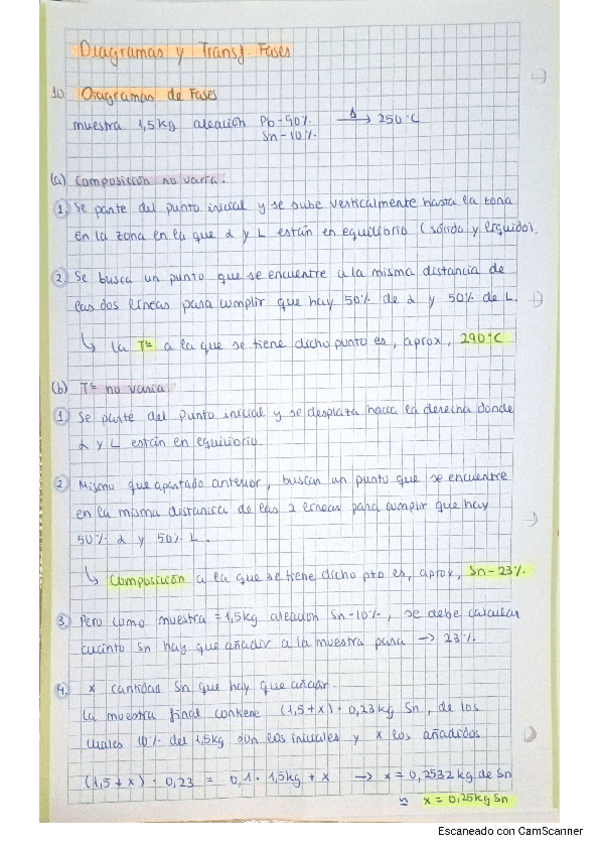 Diagramas y Transf. Fases
10 Diagramas de Fases
muestra 1,5kg aleación Pb-90% Δ→ 250°C
Sn-10%
(a) Composición no varía.
1. Se parte del punto inicial y se sube verticalmente hasta la zona
en la zona en la que α y L están en equilibrio (sólido y líquido).
2. Se busca un punto que se encuentre a la misma distancia de
las dos líneas para cumplir que hay 50% de α y 50% de L.
↳ La Tª a la que se tiene dicho punto es, aprox, 290°C
(b) Tª no varía
1. Se parte del punto inicial y se desplaza hacia la derecha donde
α y L están en equilibrio.
2. Mismo que apartado anterior, buscan un punto que se encuentre
en la misma distancia de las 2 líneas para cumplir que hay
50% α y 50% L.
↳ Composición a la que se tiene dicho pto es, aprox, Sn-23%
3. Pero como muestra = 1,5kg aleación Sn-10%, se debe calcular
cuánto Sn hay que añadir a la muestra para → 23%
4. x cantidad Sn que hay que añadir.
La muestra final contiene (1,5+x)·0,23 kg Sn, de los
cuales 10% del 1,5kg son los iniciales y x los añadidos
(1,5+x)·0,23 = 0,1·1,5kg + x → x = 0,2532 kg de Sn
x = 0,25kg Sn
Escaneado con CamScanner